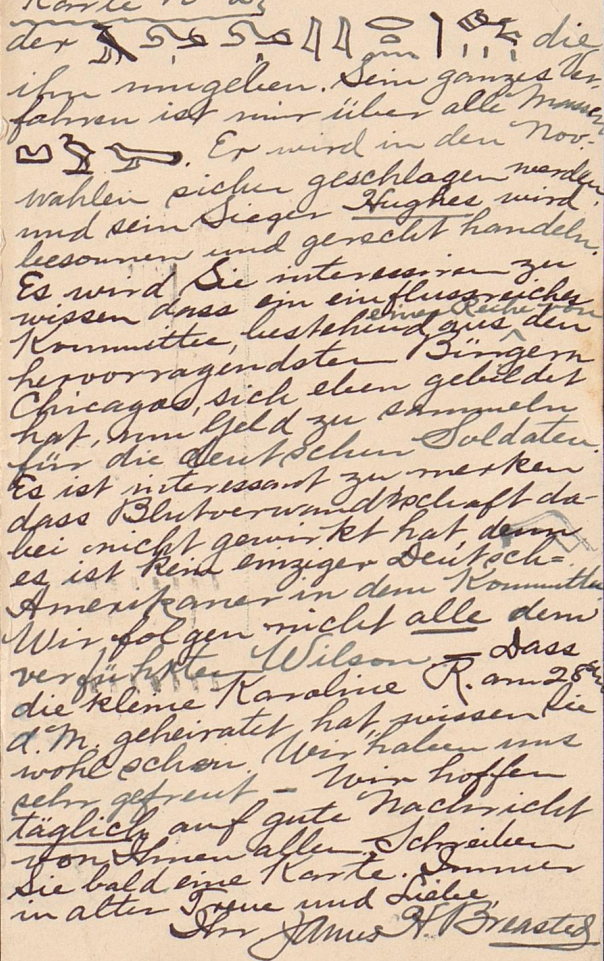 Karte No
der die
ihm umgeben. Sein ganzes Ver-
fahren ist mir über alle Massen
Er wird in den Nov.-
wahlen sicher geschlagen werden,
und sein Sieger Hughes wird
besonnen und gerecht handeln.
Es wird Sie interessiren zu
wissen dass ein einflussreiches
Kommittee, bestehend aus einer Reihe von den
hervorragendsten Bürgern
Chicagos, sich eben gebildet
hat, um Geld zu sammeln
für die deutschen Soldaten.
Es ist interessant zu merken
dass Blutverwandtschaft da-
bei nicht gewirkt hat, denn
es ist kein einziger Deutsch-
Amerikaner in dem Kommittee
Wir folgen nicht alle dem
verführten Wilson — Dass
die kleine Karoline R. am 28sten
d. M. geheiratet hat, wissen Sie
wohl schon. Wir haben uns
sehr gefreut — Wir hoffen
täglich auf gute Nachricht
von Ihnen allen. Schreiben
Sie bald eine Karte. Immer
in alter Treue und Liebe,
Ihr James H. Breasted